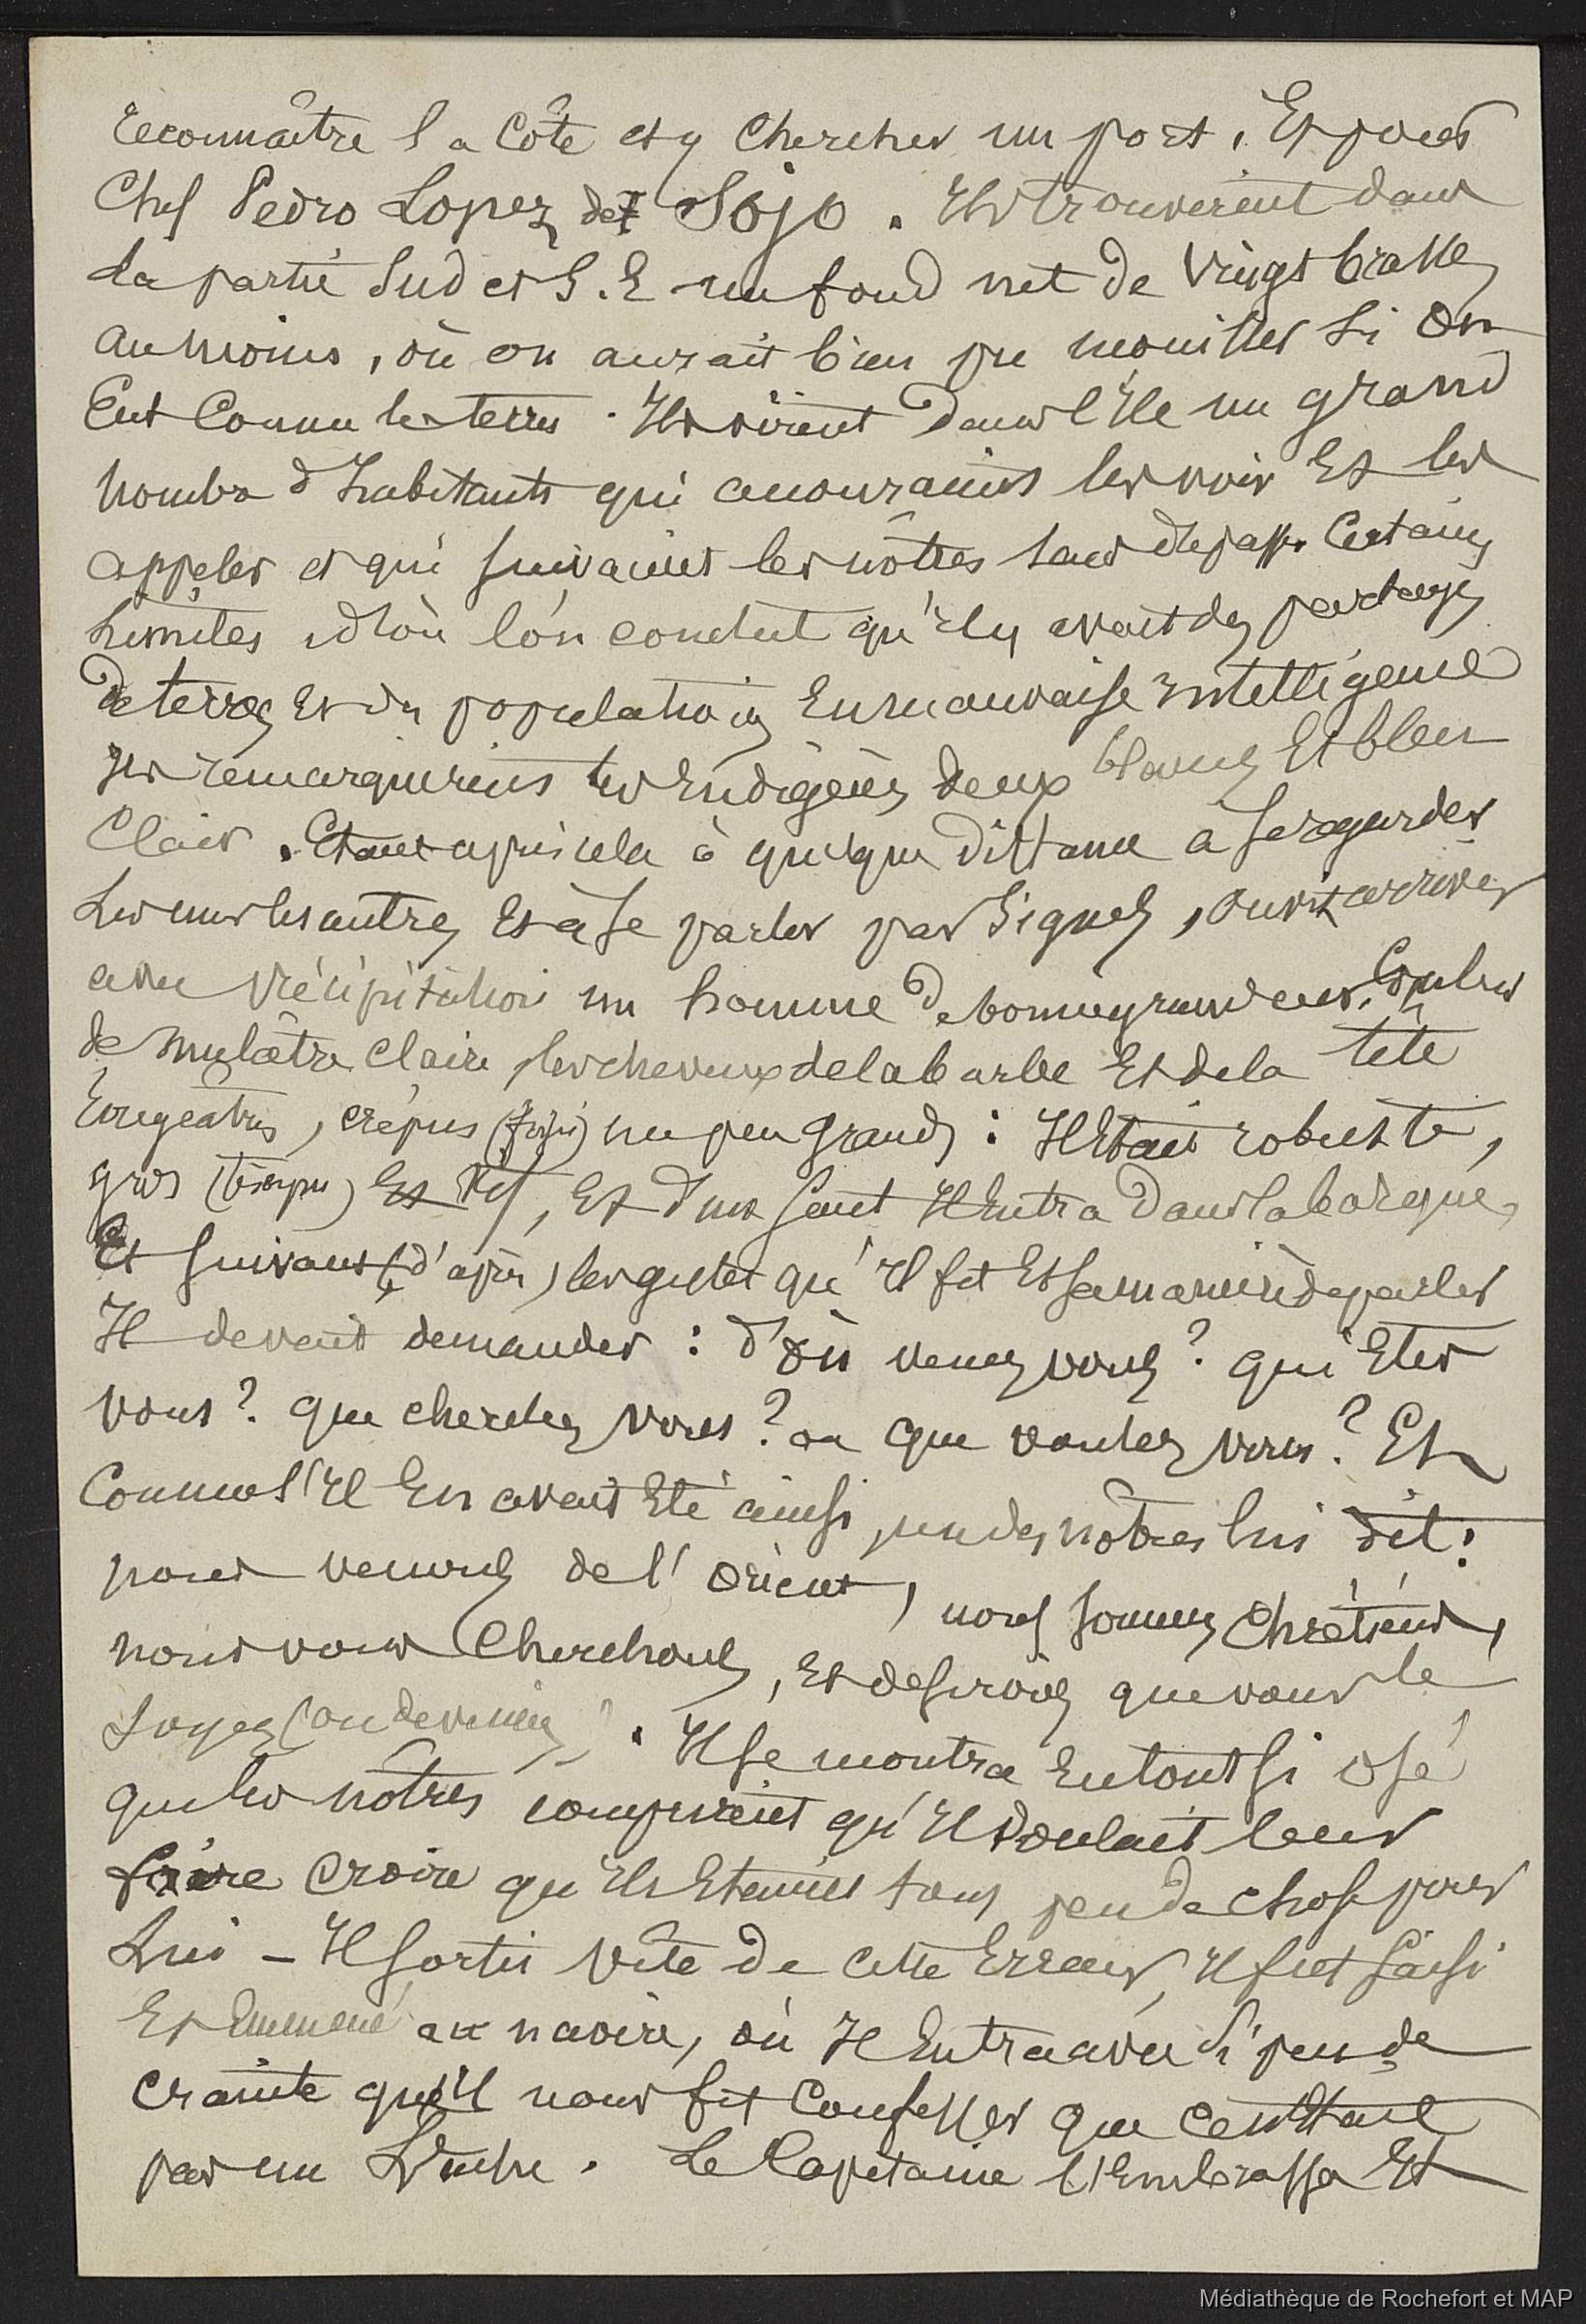 reconnaître la Côte et y chercher un port. Et pour
Chef Pedro Lopez de Sojo. Ils trouvèrent dans
la partie Sud et S.E un fond net de vingt brasses
au moins, où on aurait bien pu mouiller si on
Eut Connu les terres. Ils virent dans l'Ile un grand
nombre d'habitants qui accouraient les voir Et les
appeler et qui suivaient les nôtres sans dépasser Certaines
limites d'où l'on conclut qu'il y avait des partages
de terres Et des populations En mauvaise intelligence
Ils remarquèrent les Indigènes deux blancs Et bleu
Clair. Etant après cela à quelque distance à se regarder
Les uns les autres Et à se parler par signes, on vit arriver
avec précipitation un homme de bonne grandeur, Couleur
de mulâtre claire, les cheveux de la barbe Et de la tête
rougeatres, crépus (frisés) un peu grands : Il Etait robuste,
gros (trapu) Et vif, Et d'un saut Il Entra dans la barque,
Et suivant (d'après) les gestes qu'Il fit Et sa manière de parler
Il devait demander : d'où venez vous ? qui Etes
vous ? que cherchez vous ? ou que voulez vous ? Et
Comme s'Il En avait Eté ainsi, un des nôtres lui dit :
nous venons de l'Orient, nous sommes Chrétiens,
nous vous Cherchons, Et desirons que vous le
Soyez (ou deveniez). Il se montra En tout si osé
que les nôtres comprirent qu'Il voulait leur
faire Croire qu'Ils Etaient tous peu de chose pour
Lui – Il sortit vite de cette Erreur, Il fut saisi
Et Emmené au navire, où Il Entra avec si peu de
Crainte qu'il nous fit Confesser que ce n'Etait
pas un . Le Capitaine l'Embrassa Et
Médiathèque de Rochefort et MAP